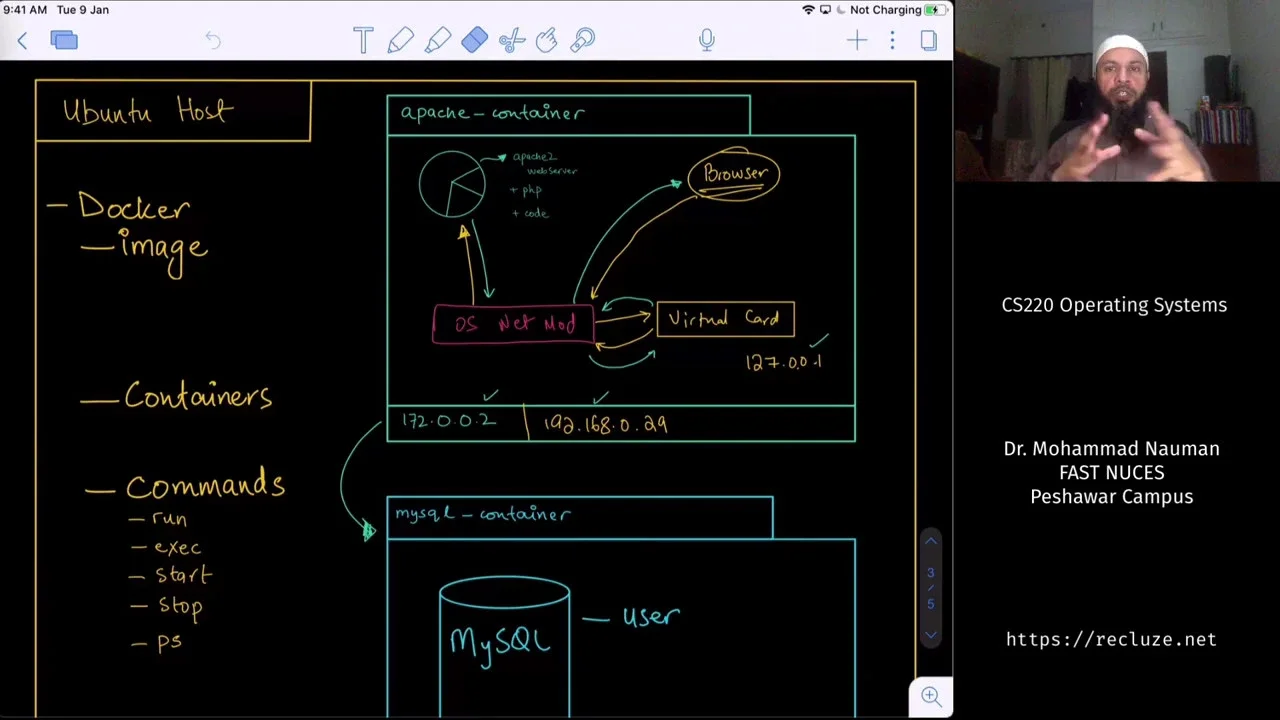 9:41 AM Tue 9 Jan
Not Charging
Ubuntu Host
- Docker
- image
- Containers
- Commands
- run
- exec
- start
- stop
- ps
apache-container
apache2
webserver
+ php
+ code
Browser
OS Net Mod
Virtual Card
127.0.0.1
172.0.0.2
192.168.0.29
mysql-container
MySQL
- user
3
/
5
CS220 Operating Systems
Dr. Mohammad Nauman
FAST NUCES
Peshawar Campus
https://recluze.net